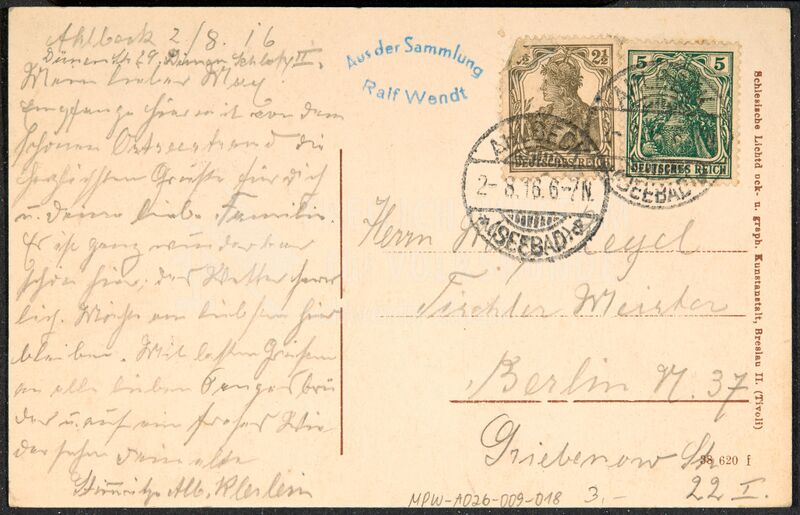 Ahlbeck 2/8. 16
Dünen St 29, Dünen Schloß II.
Mein lieber Max
Empfange hiermit von dem
schönen Ostseestrand die
herzlichsten Grüße für dich
u. deine liebe Familie.
Es ist ganz wunderbar
schön hier, das Wetter herr
lich. Möchte am liebsten hier
bleiben. Mit besten Grüßen
an alle lieben Sangesbrü
der u. auf ein frohes Wie
dersehn dein alte
Alb. Klerlein
Aus der Sammlung
Ralf Wendt
2½
DEUTSCHES REICH
5 5
DEUTSCHES REICH
AHLBECK
2-8.16.6-7N.
(SEEBAD)
(SEEBAD)
Herrn
Tischler Meister
Berlin N. 37
Griebenow St.
22 I.
38 620 f
MPW-A026-009-018
3,-
Schlesische Lichtdruck- u. graph. Kunstanstalt, Breslau II. (Tivoli)